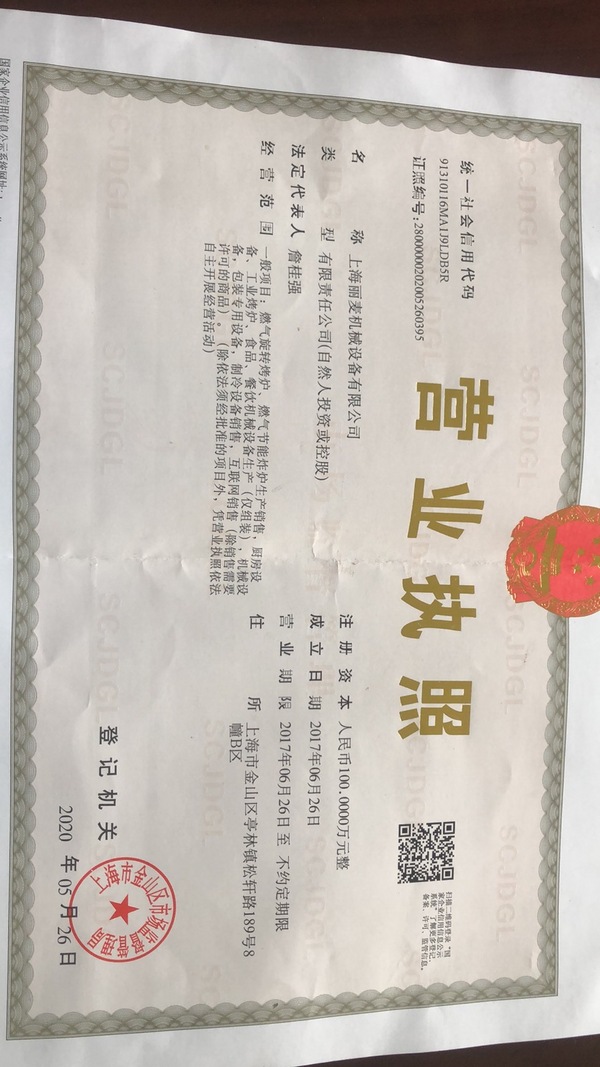 统一社会信用代码
91310116MA1J9LDB5R
证照编号：28000000202005260395
营业执照
扫描二维码登录“国
家企业信用信息公示
系统”了解更多登记、
备案、许可、监管信息。
名称 上海丽麦机械设备有限公司
类型 有限责任公司(自然人投资或控股)
法定代表人 詹桂强
经营范围 一般项目：燃气旋转烤炉、燃气节能炸炉生产销售，厨房设
备、工业烤炉、食品、餐饮机械设备生产（仅组装），机械设
备，包装专用设备，制冷设备销售，互联网销售（除销售需要
许可的商品）。（除依法须经批准的项目外，凭营业执照依法
自主开展经营活动）
注册资本 人民币100.0000万元整
成立日期 2017年06月26日
营业期限 2017年06月26日至 不约定期限
住所 上海市金山区亭林镇松轩路189号8
幢B区
登记机关
上海市金山区市场监督管理局
2020 年 05 月 26 日
国家企业信用信息公示系统网址:
SCJDGL